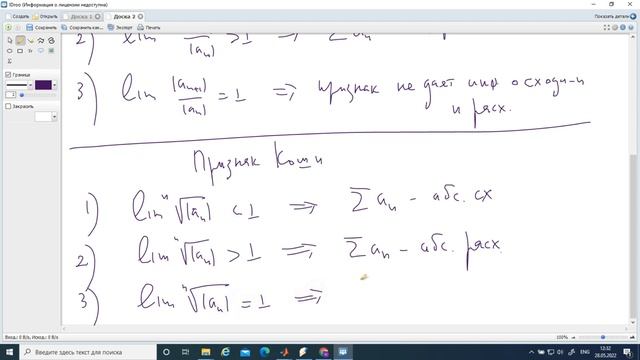 IDroo (Информация о лицензии недоступна)
Создать Открыть Доска 1 Доска 2 Показать детали
Сохранить Сохранить как... Экспорт Печать
Граница
Закрасить
2) lim /|aₙ| > 1 ⇒ Σaₙ
3) lim |aₙ₊₁|/|aₙ| = 1 ⇒ признак не дает инф о сходи-и
и расх.
Признак Коши
1) lim ⁿ√|aₙ| < 1 ⇒ Σaₙ - абс. сх
2) lim ⁿ√|aₙ| > 1 ⇒ Σaₙ - абс. расх.
3) lim ⁿ√|aₙ| = 1 ⇒
Вход.: 0 B/s, Исход.: 0 B/s 100%
12:32
28.05.2022